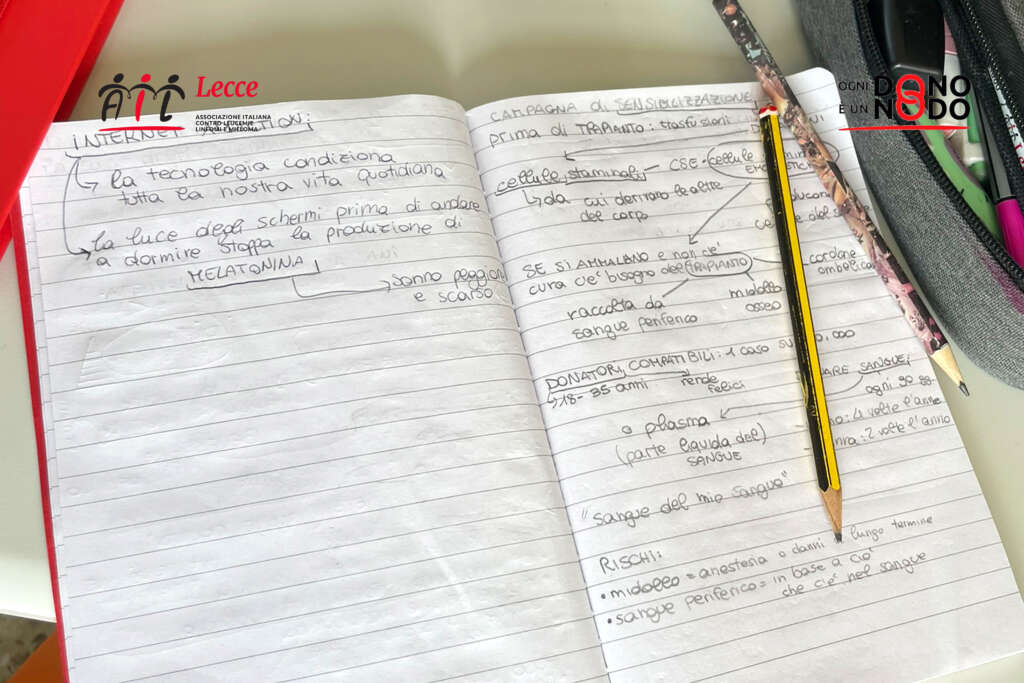 AIL Lecce
ASSOCIAZIONE ITALIANA
CONTRO LEUCEMIE
LINFOMI E MIELOMA
OGNI DONO
È UN NODO
INTERNET
la tecnologia condiziona
tutta la nostra vita quotidiana
la luce degli schermi prima di andare
a dormire stoppa la produzione di
MELATONINA
sonno peggiore
e scarso
CAMPAGNA di SENSIBILIZZAZIONE
prima di TRAPIANTO: trasfusioni
cellule staminali - CSE = cellule
da cui derivano le altre
del corpo
SE SI AMMALANO e non c'è
cura c'è bisogno del TRAPIANTO
cordone
ombelicale
midollo
osseo
raccolta da
sangue periferico
DONATORI COMPATIBILI: 1 caso su
18-35 anni
rende
felici
SANGUE:
ogni 90 gg.
: 4 volte l'anno
: 2 volte l'anno
o plasma
(parte liquida del)
SANGUE
"sangue del mio sangue"
RISCHI:
• midollo = anestesia o danni a lungo termine
• sangue periferico = in base a ciò
che c'è nel sangue